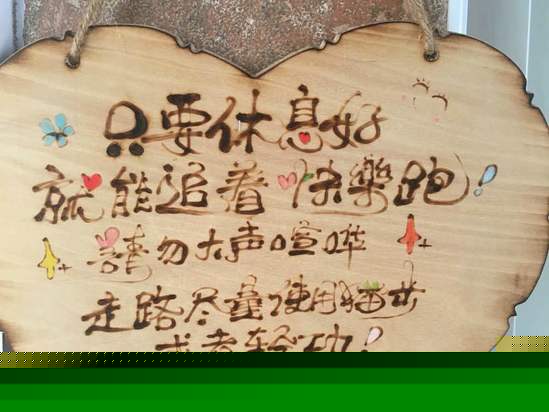 只要休息好
就能追着快樂跑!
請勿大声喧哗
走路尽量使用猫步
或者轻功!